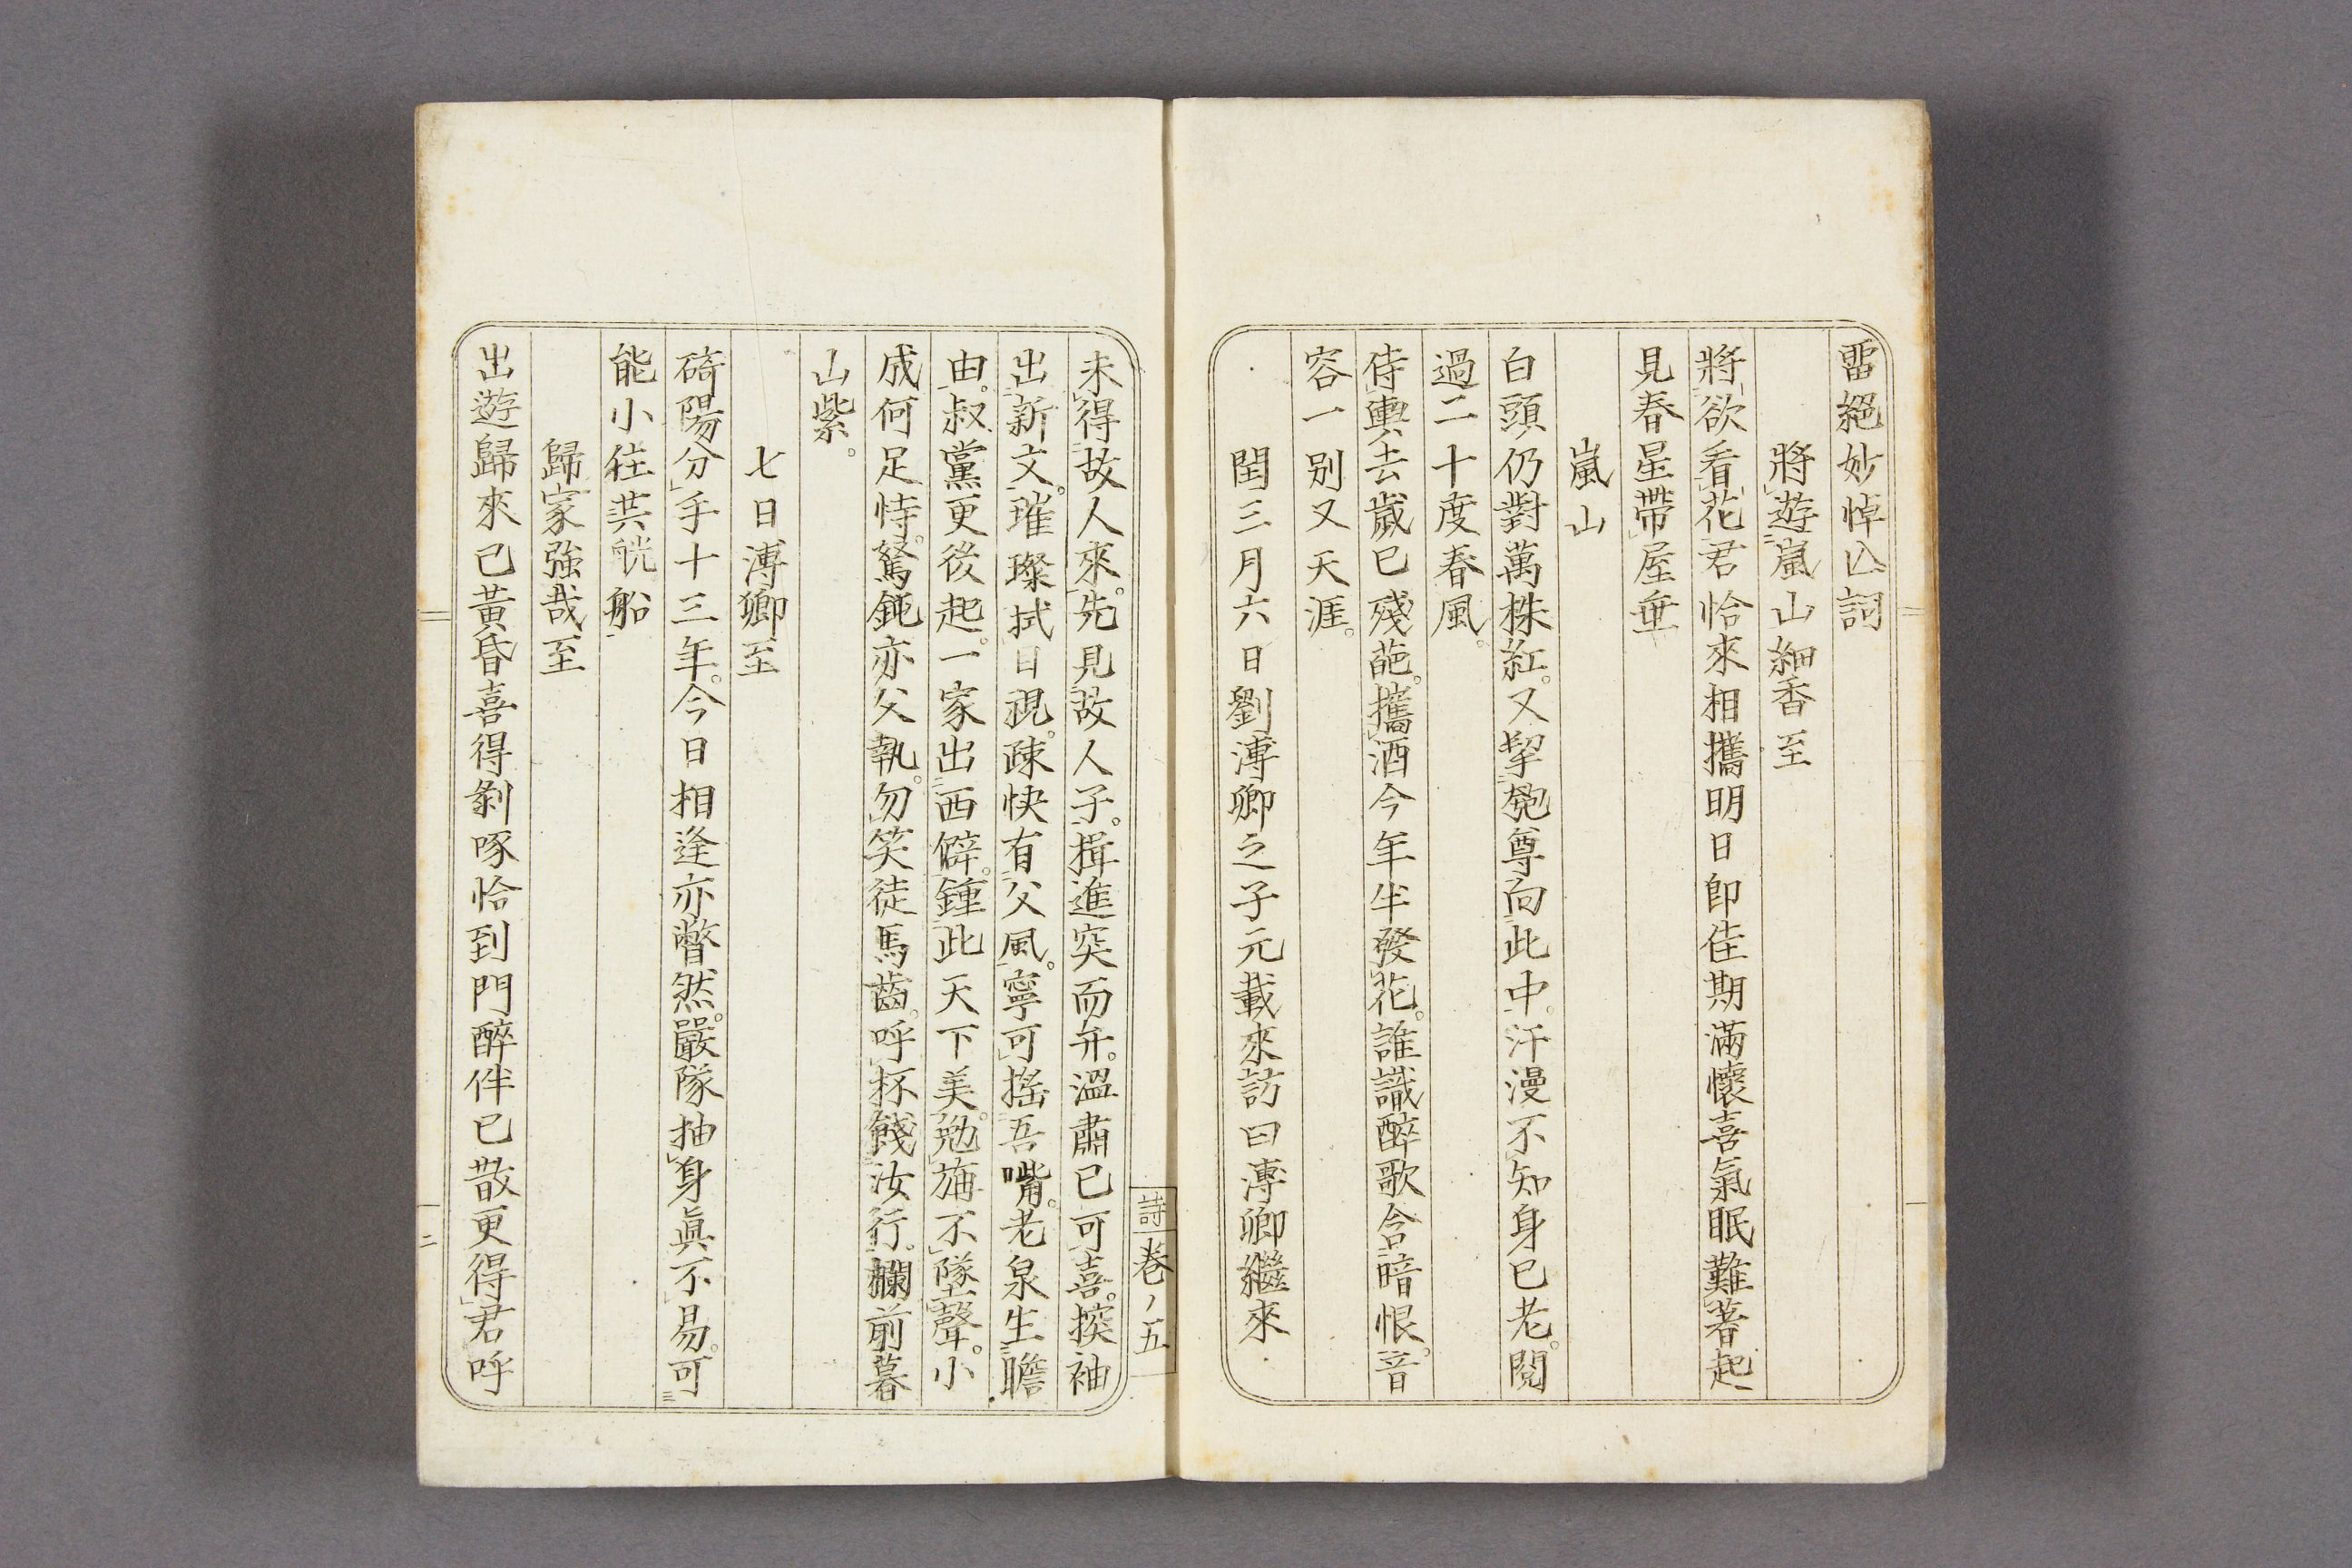 畱絕妙悼亾詞
將遊嵐山細香至
將欲看花君恰來相攜明日卽佳期滿懷喜氣眠難著起
見春星帶屋垂
嵐山
白頭仍對萬株紅。又挈匏尊向此中。汗漫不知身已老。閱
過二十度春風。
侍輿去歲已殘葩。攜酒今年半發花。誰識醉歌含暗恨。音
容一別又天涯。
閏三月六日劉溥卿之子元載來訪曰溥卿繼來
未得故人來。先見故人子。揖進突而弁。溫肅已可喜。探袖
出新文。璀璨拭目視。疎快有父風。寧可搖吾嘴。老泉生瞻
由。叔黨更後起。一家出西僻。鍾此天下美。勉旃不墜聲。小
成何足恃。駑鈍亦父執。勿笑徒馬齒。呼杯餞汝行。欄前暮
山紫。
七日溥卿至
碕陽分手十三年。今日相逢亦瞥然。嚴隊抽身眞不易。可
能小住共觥船
歸家強哉至
出遊歸來已黃昏喜得剝啄恰到門醉伴已散更得君呼
詩
卷ノ五
二